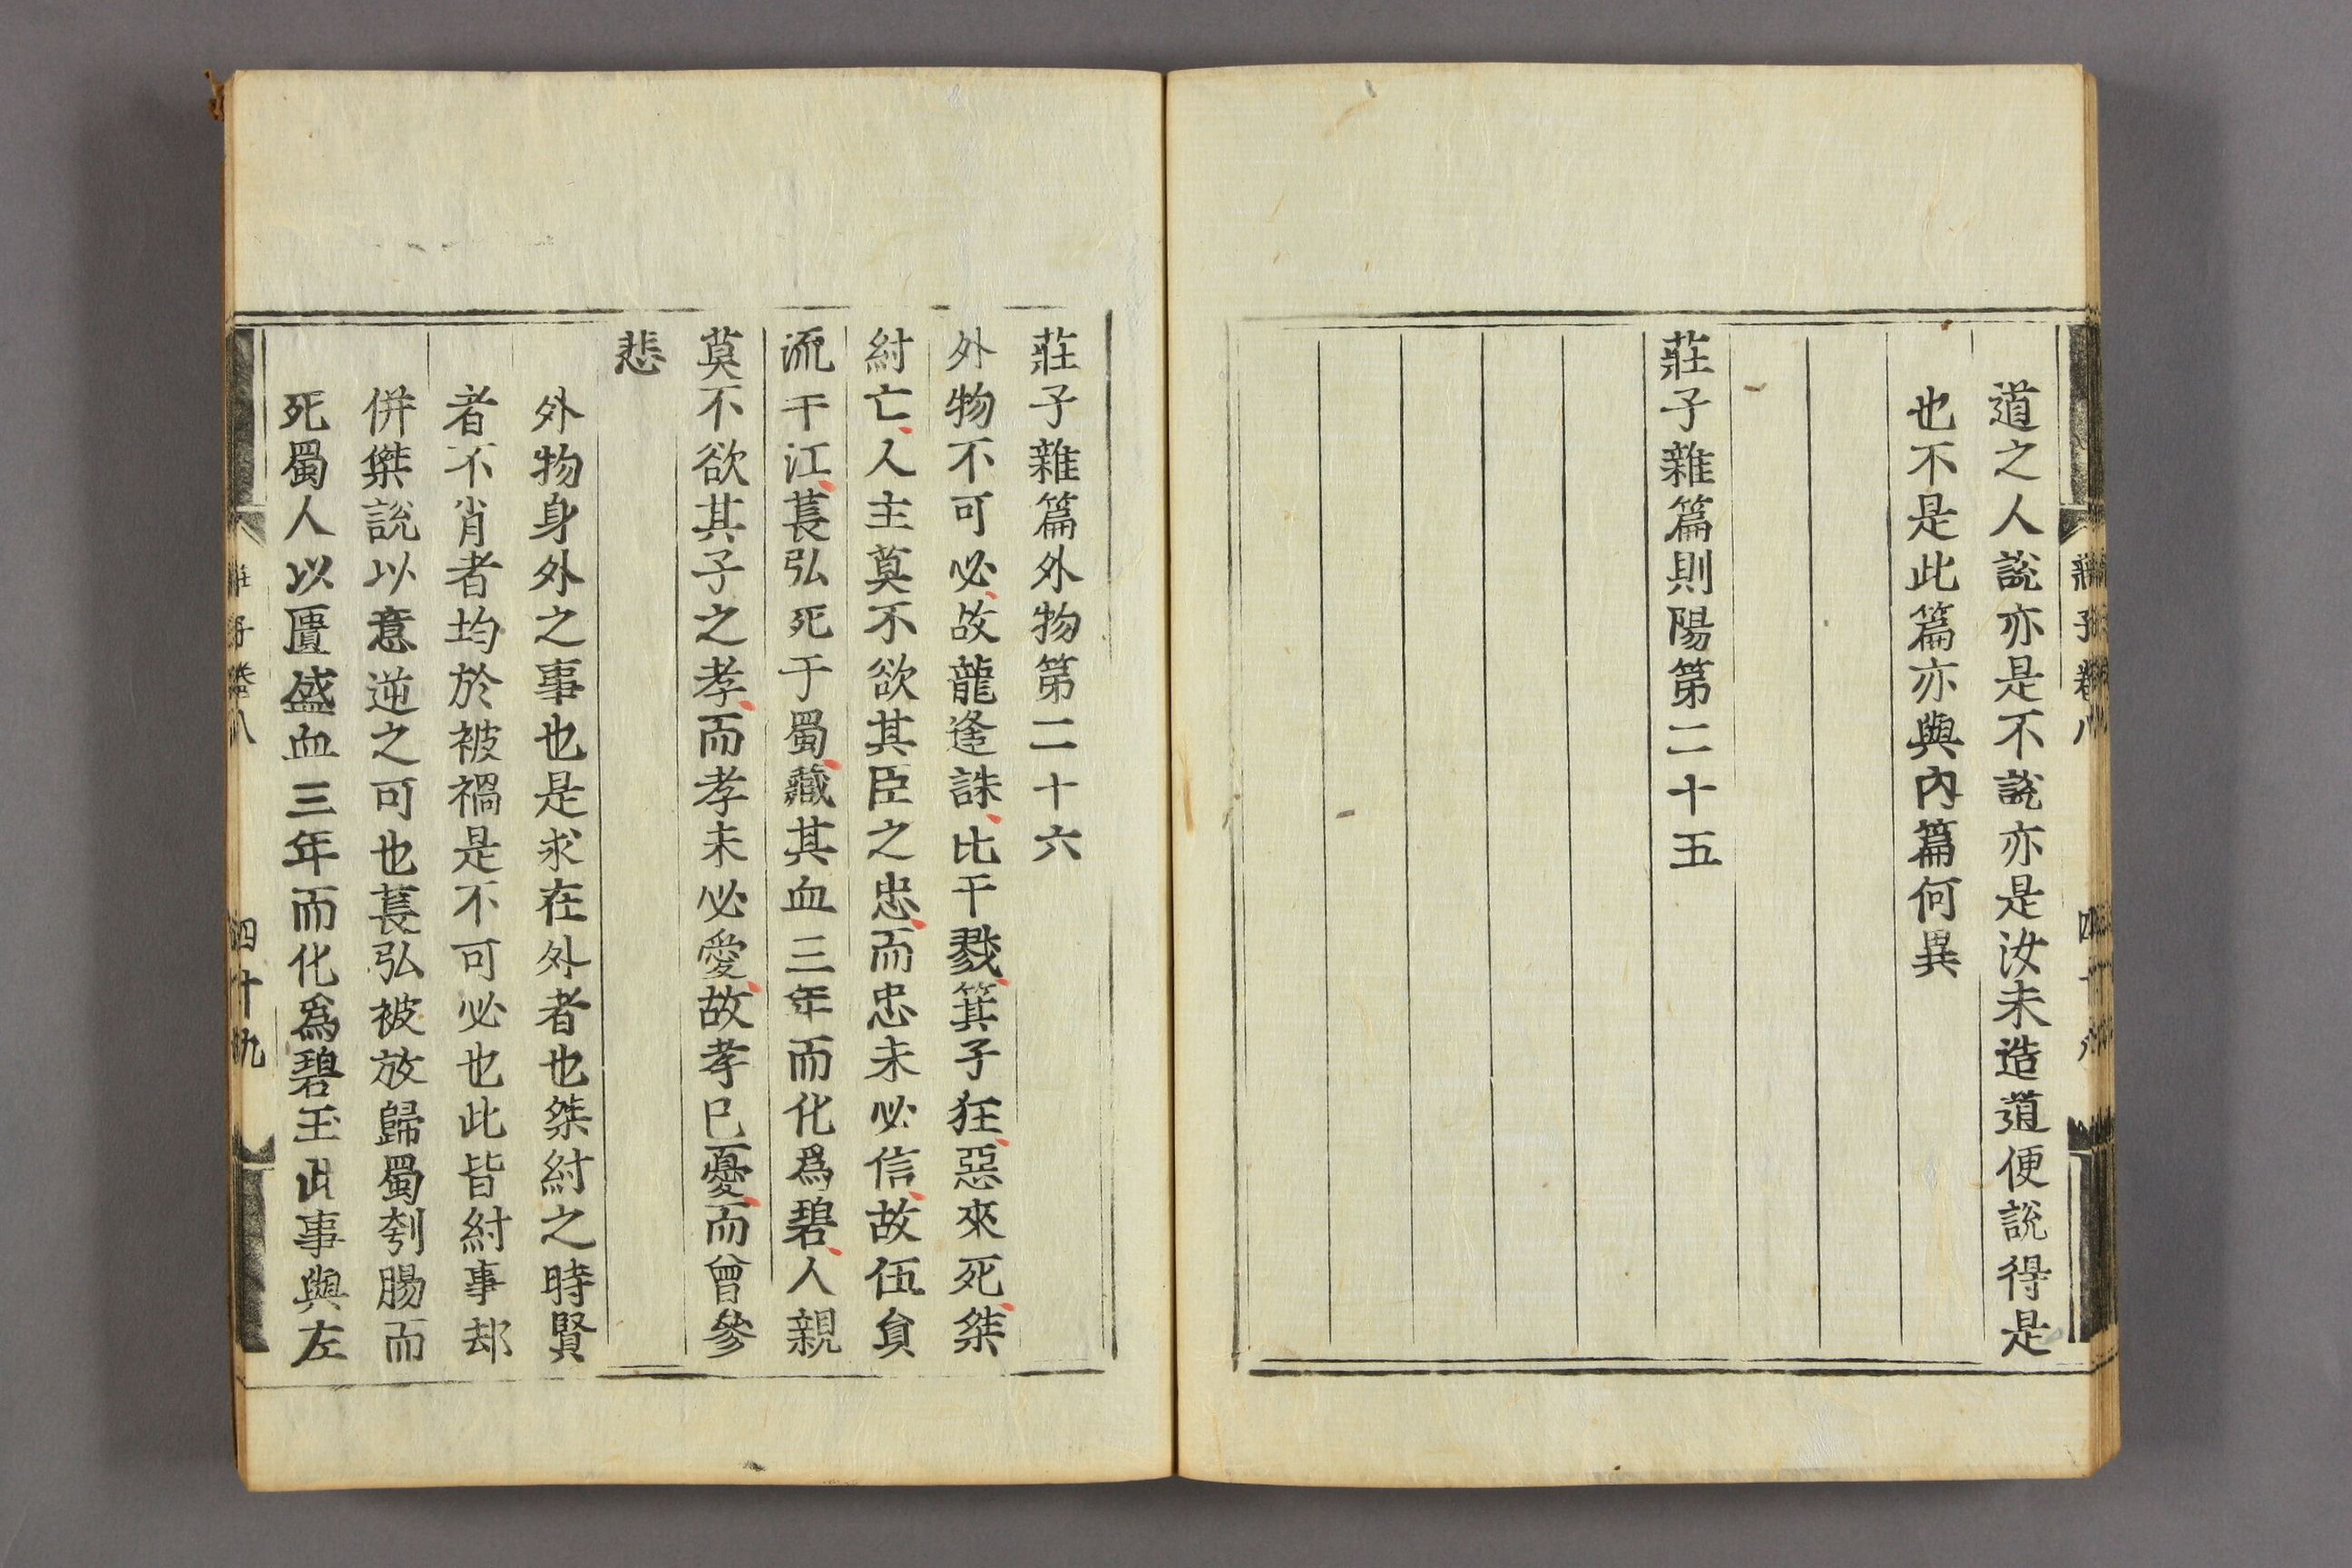 道之人說亦是不說亦是汝未造道便說得是
也不是此篇亦與內篇何異
莊子雜篇則陽第二十五
莊子卷八
莊子雜篇外物第二十六
外物不可必故龍逄誅比干戮箕子狂惡來死桀
紂亡人主莫不欲其臣之忠而忠未必信故伍員
流于江萇弘死于蜀藏其血三年而化爲碧人親
莫不欲其子之孝而孝未必愛故孝已憂而曾參
悲
外物身外之事也是求在外者也桀紂之時賢
者不肖者均於被禍是不可必也此皆紂事却
併桀說以意逆之可也萇弘被放歸蜀刳腸而
死蜀人以匱盛血三年而化爲碧玉此事與左
莊子卷八
四十九